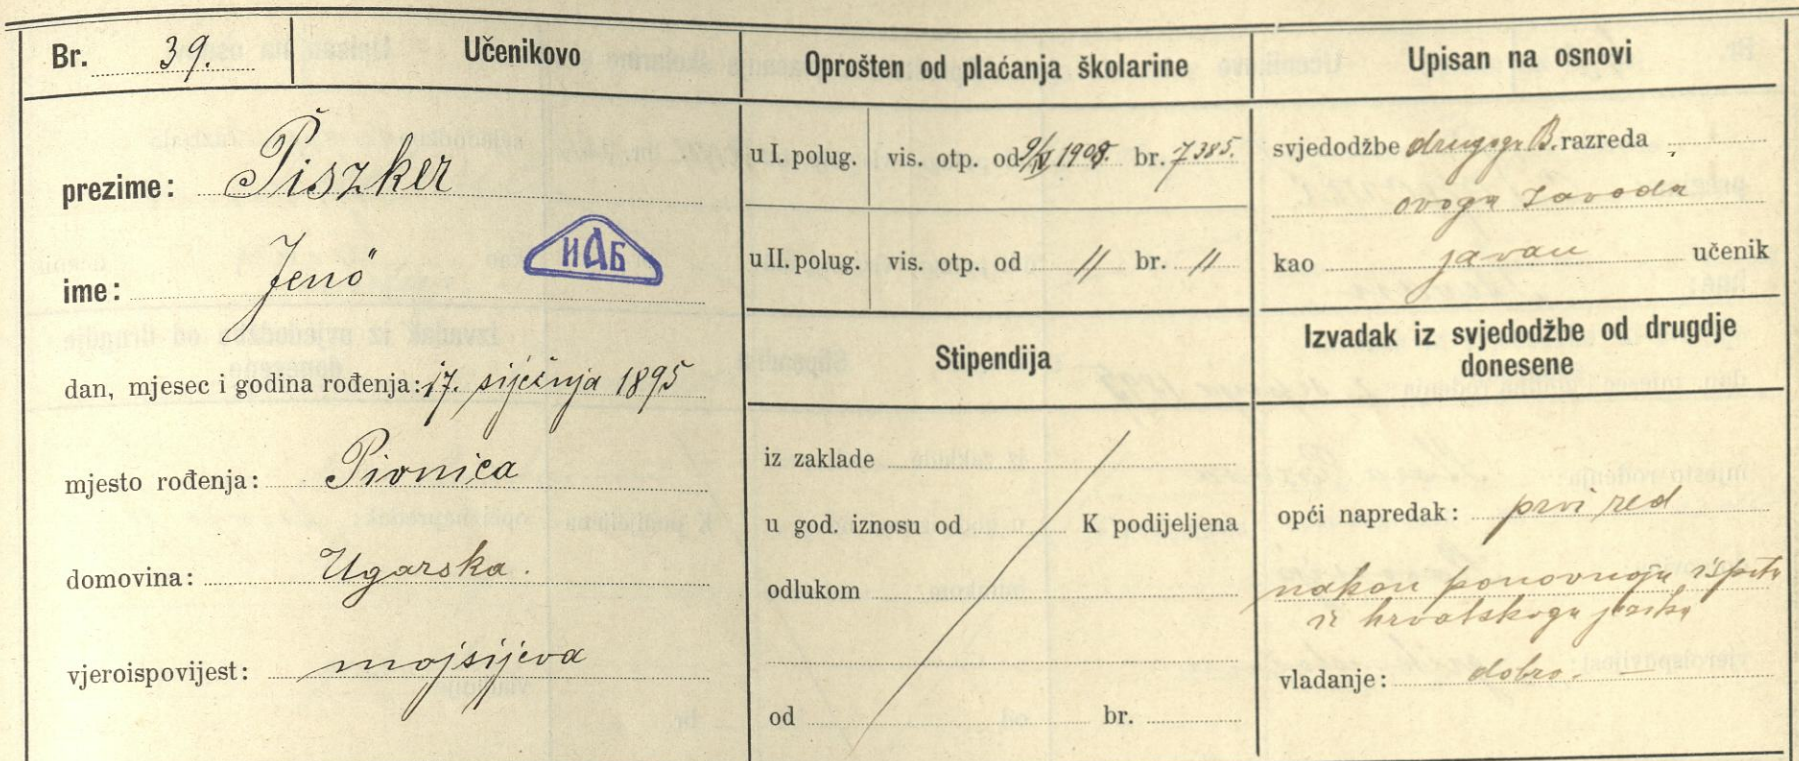 Br. 39.
Učenikovo
prezime: Piszker
ime: Jenő
ИАБ
dan, mjesec i godina rođenja: 17. siječnja 1895
mjesto rođenja: Pivnica
domovina: Ugarska.
vjeroispovijest: mojsijeva
Oprošten od plaćanja školarine
u I. polug. vis. otp. od 1908. br. 7385.
u II. polug. vis. otp. od 〃 br. 〃
Stipendija
iz zaklade
u god. iznosu od K podijeljena
odlukom
od br.
Upisan na osnovi
svjedodžbe drugoga B. razreda
ovoga zavoda
kao javan učenik
Izvadak iz svjedodžbe od drugdje
donesene
opći napredak: prvi red
nakon ponovnoga ispita
iz hrvatskoga jezika
vladanje: dobro.